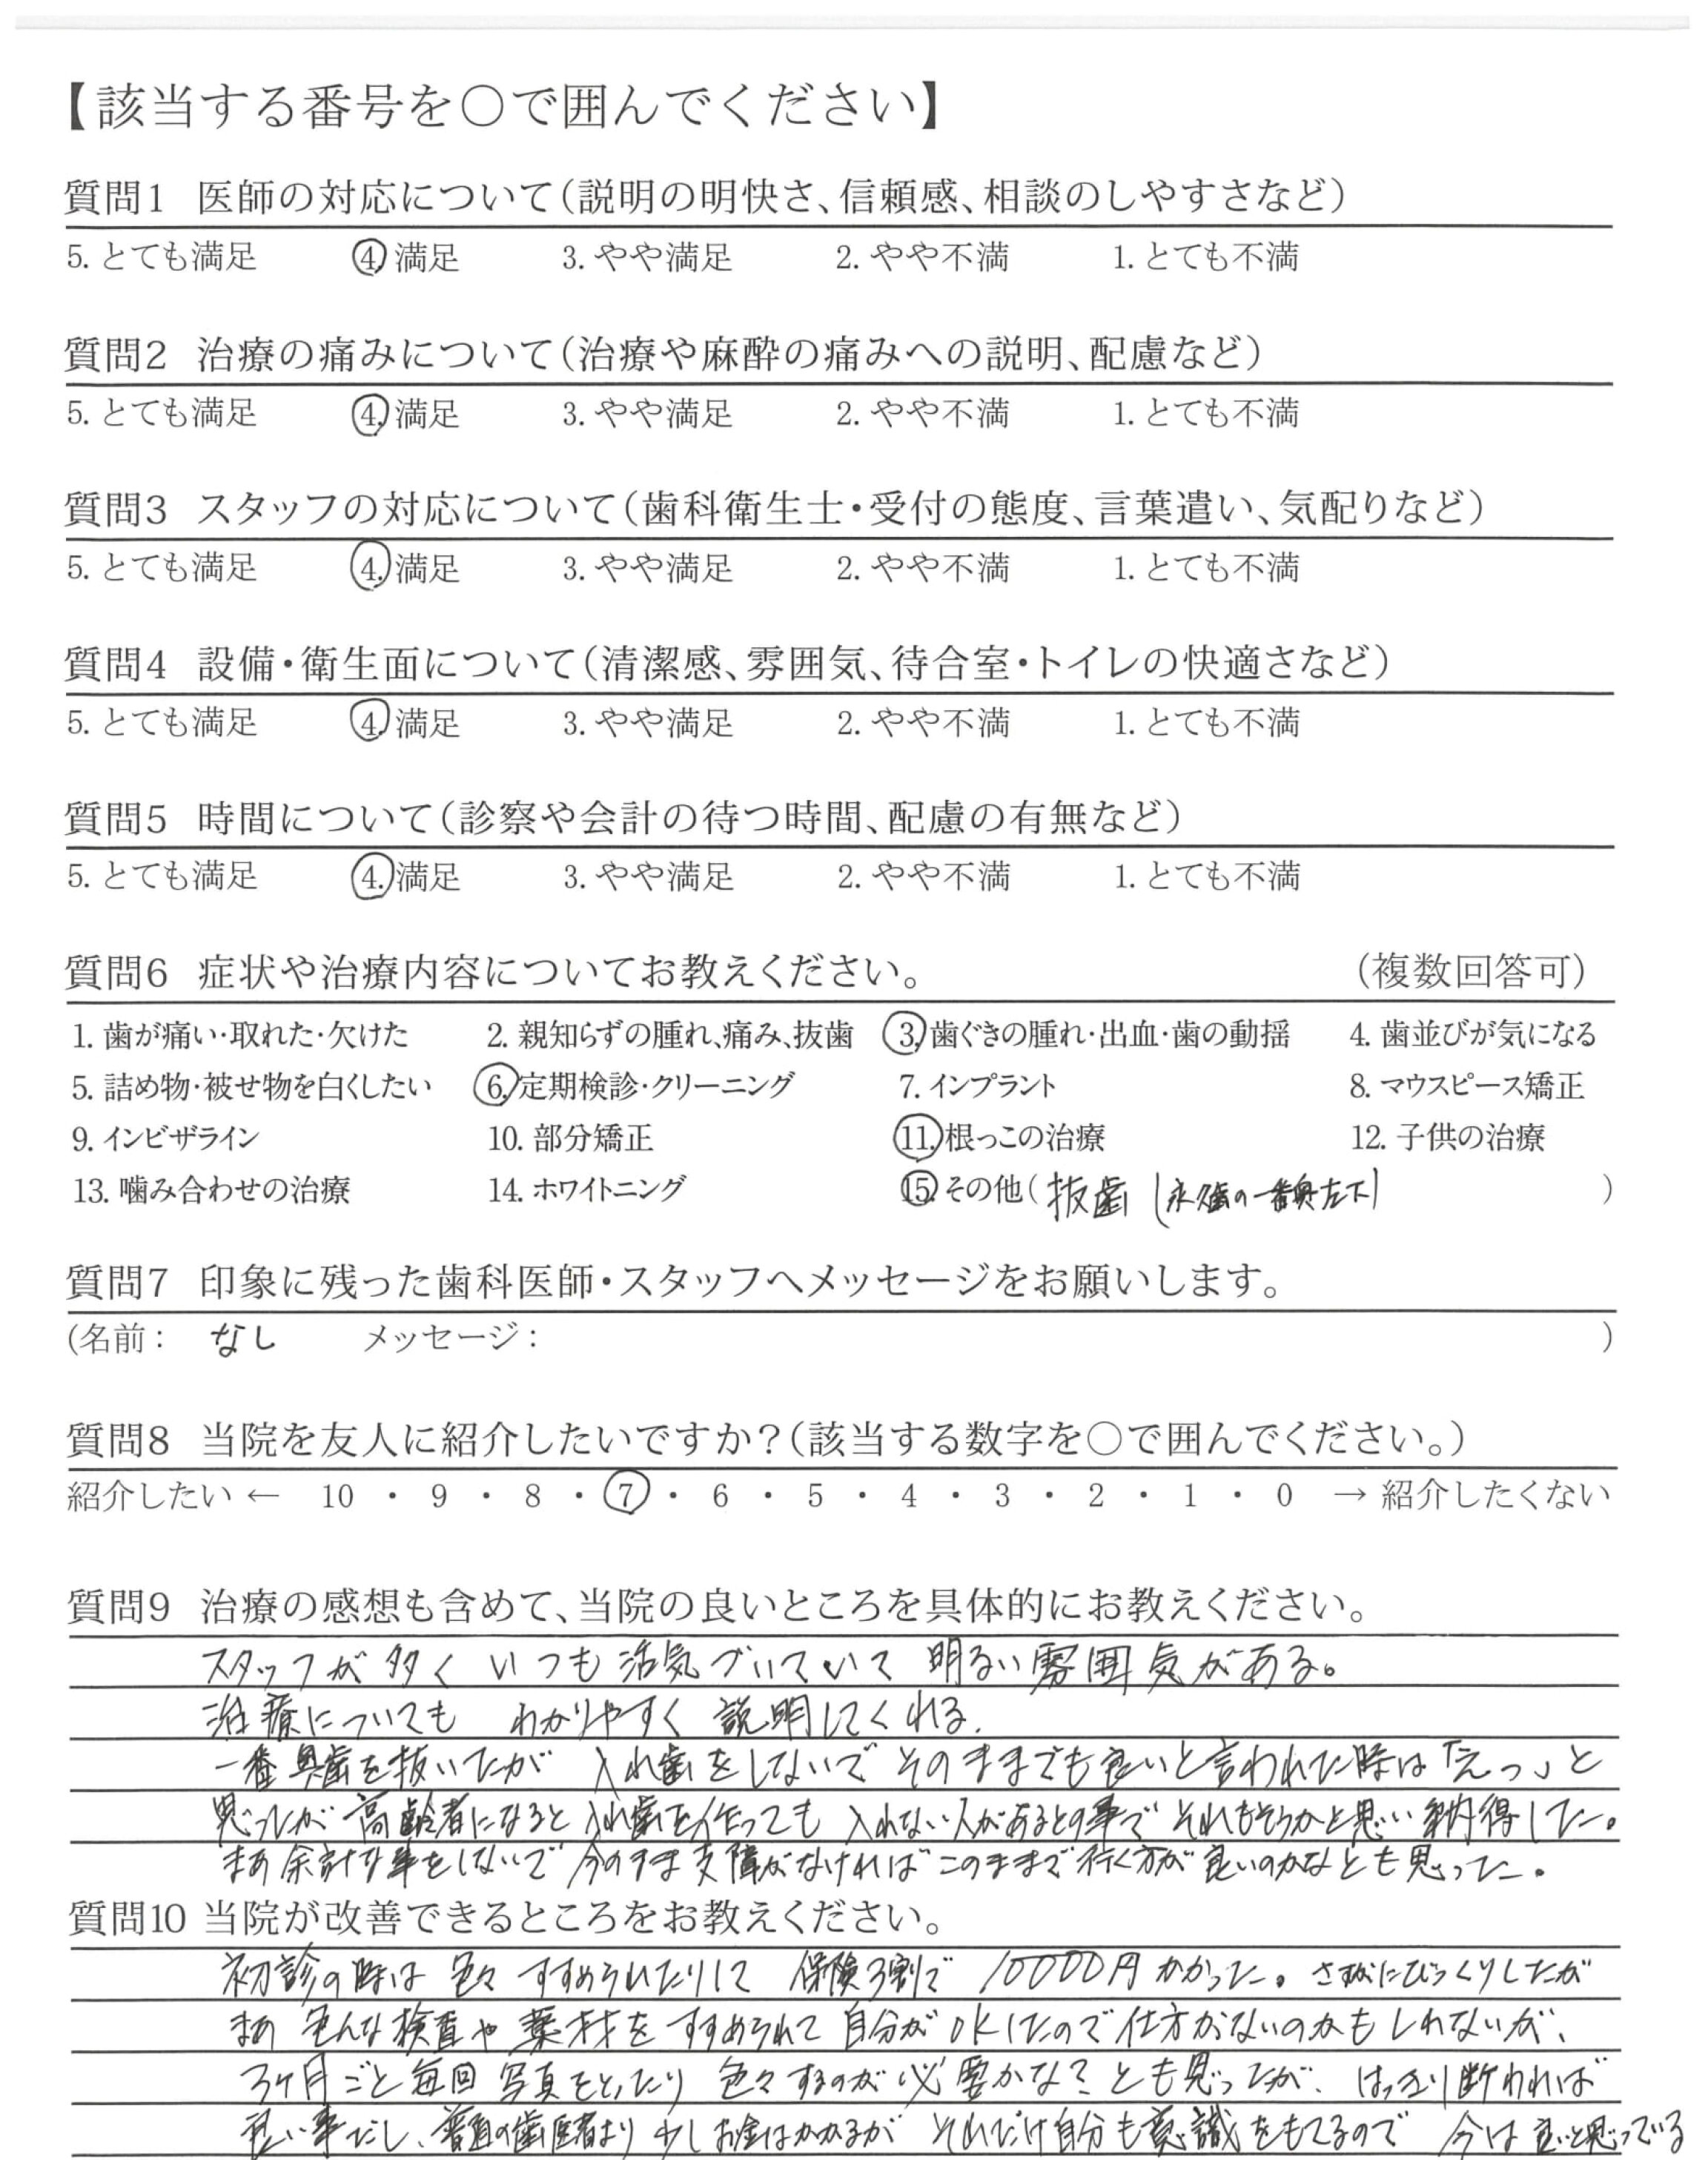 【該当する番号を○で囲んでください】
質問1 医師の対応について(説明の明快さ、信頼感、相談のしやすさなど)
5. とても満足 4. 満足 3. やや満足 2. やや不満 1. とても不満
質問2 治療の痛みについて(治療や麻酔の痛みへの説明、配慮など)
5. とても満足 4. 満足 3. やや満足 2. やや不満 1. とても不満
質問3 スタッフの対応について(歯科衛生士・受付の態度、言葉遣い、気配りなど)
5. とても満足 4. 満足 3. やや満足 2. やや不満 1. とても不満
質問4 設備・衛生面について(清潔感、雰囲気、待合室・トイレの快適さなど)
5. とても満足 4. 満足 3. やや満足 2. やや不満 1. とても不満
質問5 時間について(診察や会計の待つ時間、配慮の有無など)
5. とても満足 4. 満足 3. やや満足 2. やや不満 1. とても不満
質問6 症状や治療内容についてお教えください。 (複数回答可)
1. 歯が痛い・取れた・欠けた 2. 親知らずの腫れ、痛み、抜歯 3. 歯ぐきの腫れ・出血・歯の動揺 4. 歯並びが気になる
5. 詰め物・被せ物を白くしたい 6. 定期検診・クリーニング 7. インプラント 8. マウスピース矯正
9. インビザライン 10. 部分矯正 11. 根っこの治療 12. 子供の治療
13. 噛み合わせの治療 14. ホワイトニング 15. その他( 抜歯 (永歯の一番奥左下) )
質問7 印象に残った歯科医師・スタッフへメッセージをお願いします。
(名前: なし メッセージ: )
質問8 当院を友人に紹介したいですか?(該当する数字を○で囲んでください。)
紹介したい ← 10 ・ 9 ・ 8 ・ 7 ・ 6 ・ 5 ・ 4 ・ 3 ・ 2 ・ 1 ・ 0 → 紹介したくない
質問9 治療の感想も含めて、当院の良いところを具体的にお教えください。
スタッフが多く いつも活気づいていて 明るい雰囲気がある。
治療についても わかりやすく 説明してくれる.
一番奥歯を抜いたが 入れ歯をしないで そのままでも良いと言われた時は「えっ」と
思ったが 高齢者になると 入れ歯を作っても 入れない人があるとの事で それもそうかと思い 納得した。
まあ 余計な事をしないで 今のまま支障がなければ このままで行く方が 良いのかなとも思った。
質問10 当院が改善できるところをお教えください。
初診の時は 色々 すすめられたりして 保険3割で 10000円 かかった。さすがにびっくりしたが
まあ 色んな検査や 薬剤を すすめられて 自分が OKしたので 仕方がないのかもしれないが、
3ヶ月ごと 毎回 写真をとったり 色々するのが 必要かな? とも思ったが、はっきり断われば
良い事だし、普通の歯医者より 少しお金はかかるが それだけ自分も意識をもてるので 今は良いと思っている